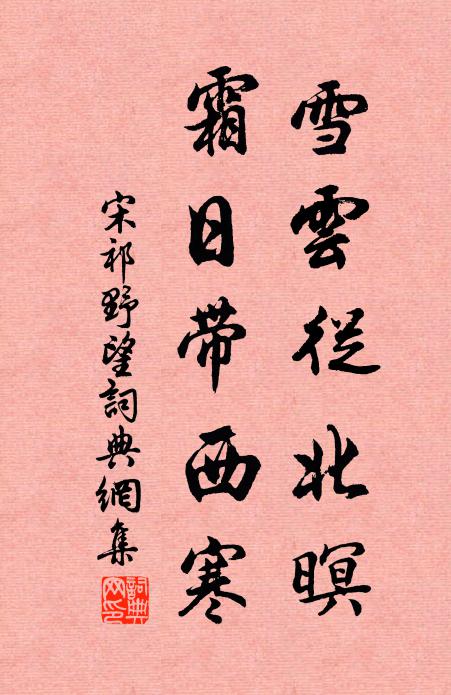 雪雲從北暝
霜日帶西寒
宋祁野望詞典網集
詞典網印